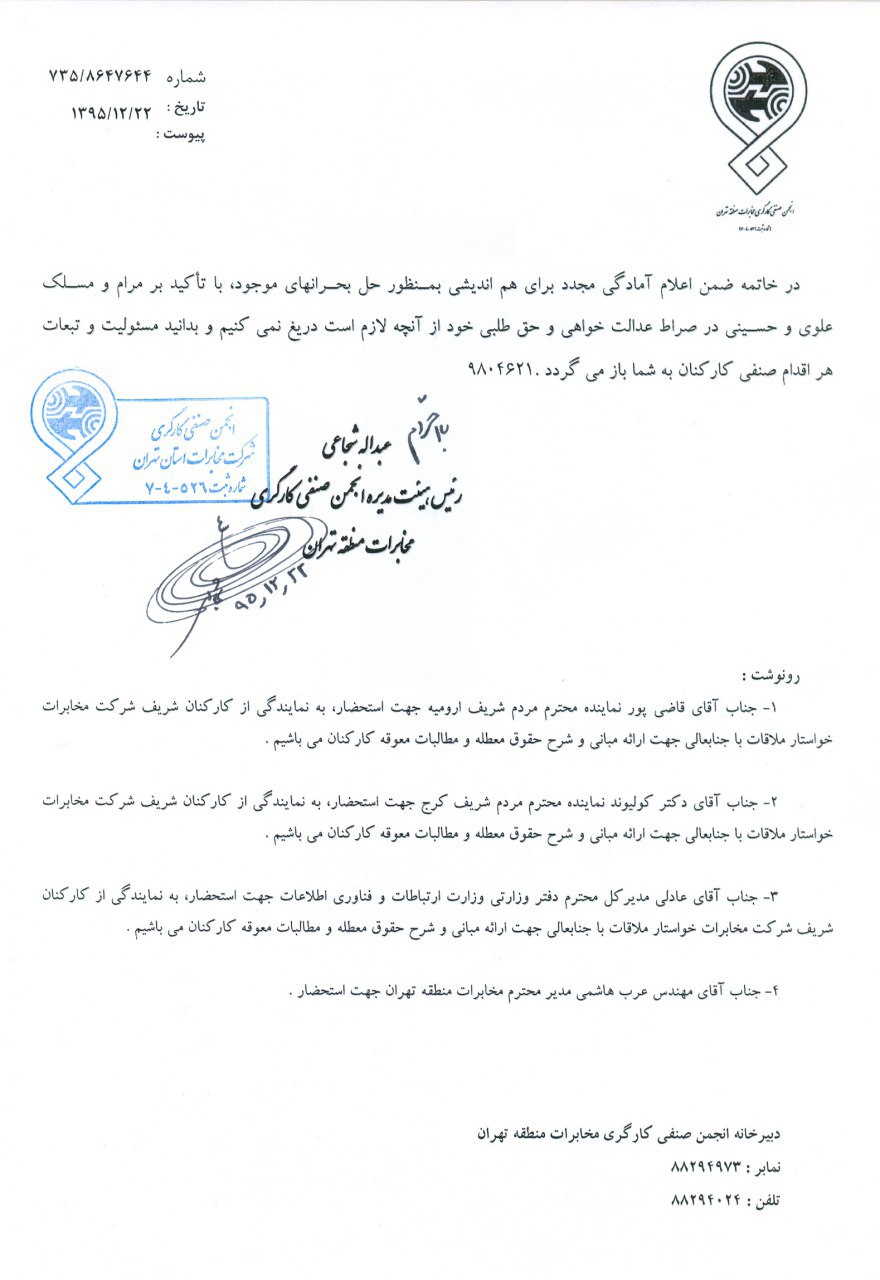 شماره ۷۳۵/۸۶۴۷۶۴۴
تاریخ : ۱۳۹۵/۱۲/۲۲
پیوست :
انجمن صنفی کارگری مخابرات منطقه تهران
در خاتمه ضمن اعلام آمادگی مجدد برای هم اندیشی بمـنظور حل بحـرانهای موجود، با تأکید بر مرام و مسـلک
علوی و حسـینی در صراط عدالت خواهی و حق طلبی خود از آنچه لازم است دریغ نمی کنیم و بدانید مسئولیت و تبعات
هر اقدام صنفی کارکنان به شما باز می گردد .۹۸۰۴۶۲۱
انجمن صنفی کارگری
شرکت مخابرات استان تهران
شماره ثبت ۵۲۶-۴-۷
با احترام
عبداله شجاعی
رئیس هیئت مدیره انجمن صنفی کارگری
مخابرات منطقه تهران
۹۵,۱۲,۲۲
رونوشت :
۱- جناب آقای قاضی پور نماینده محترم مردم شریف ارومیه جهت استحضار، به نمایندگی از کارکنان شریف شرکت مخابرات
خواستار ملاقات با جنابعالی جهت ارائه مبانی و شرح حقوق معطله و مطالبات معوقه کارکنان می باشیم .
۲- جناب آقای دکتر کولیوند نماینده محترم مردم شریف کرج جهت استحضار، به نمایندگی از کارکنان شریف شرکت مخابرات
خواستار ملاقات با جنابعالی جهت ارائه مبانی و شرح حقوق معطله و مطالبات معوقه کارکنان می باشیم .
۳- جناب آقای عادلی مدیرکل محترم دفتر وزارتی وزارت ارتباطات و فناوری اطلاعات جهت استحضار، به نمایندگی از کارکنان
شریف شرکت مخابرات خواستار ملاقات با جنابعالی جهت ارائه مبانی و شرح حقوق معطله و مطالبات معوقه کارکنان می باشیم .
۴- جناب آقای مهندس عرب هاشمی مدیر محترم مخابرات منطقه تهران جهت استحضار .
دبیرخانه انجمن صنفی کارگری مخابرات منطقه تهران
نمابر : ۸۸۲۹۴۹۷۳
تلفن : ۸۸۲۹۴۰۲۴